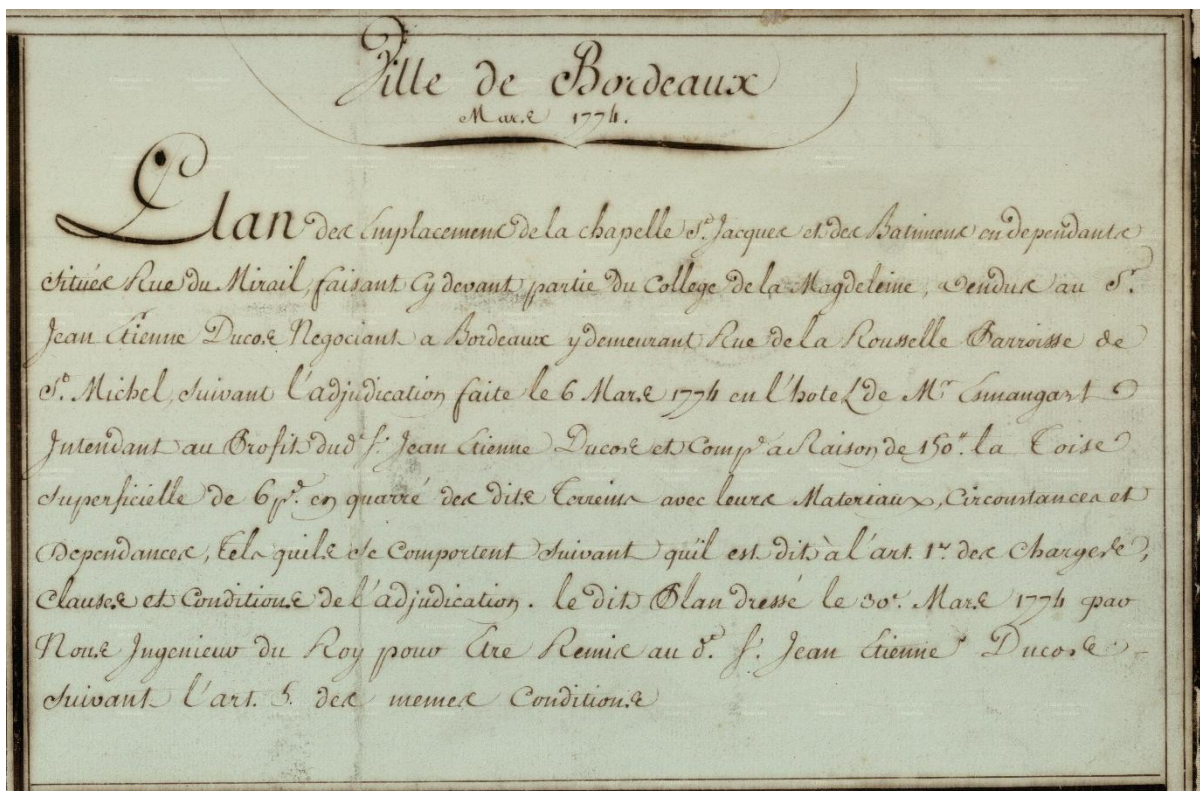 Ville de Bordeaux
Mars 1774.
Plan des Emplacemens de la chapelle St. Jacques et des Batimens en dependants
situés Rue du Mirail, faisant Cy devant partie du College de la Magdeleine, Vendus au Sr.
Jean Etienne Ducos Negociant a Bordeaux y demeurant Rue de la Rousselle Parroisse de
St. Michel, suivant l'adjudication faite le 6 Mars 1774 en l'hotel de Mr Esmangart
Intendant au Profit dud. Sr. Jean Etienne Ducos et Compe. a Raison de 150tt. la Toise
superficielle de 6 pds. en quarré des dits Terreins avec leurs Materiaux, Circonstances et
Dependances, Tels quils se Comportent suivant qu'il est dit à l'art. 1er. des Charges,
Clauses et Conditions de l'adjudication. le dit Plan dressé le 30e. Mars 1774 par
Nous Ingenieur du Roy pour Etre Remis au d. Sr. Jean Etienne Ducos
suivant l'art. 5. des memes Conditions